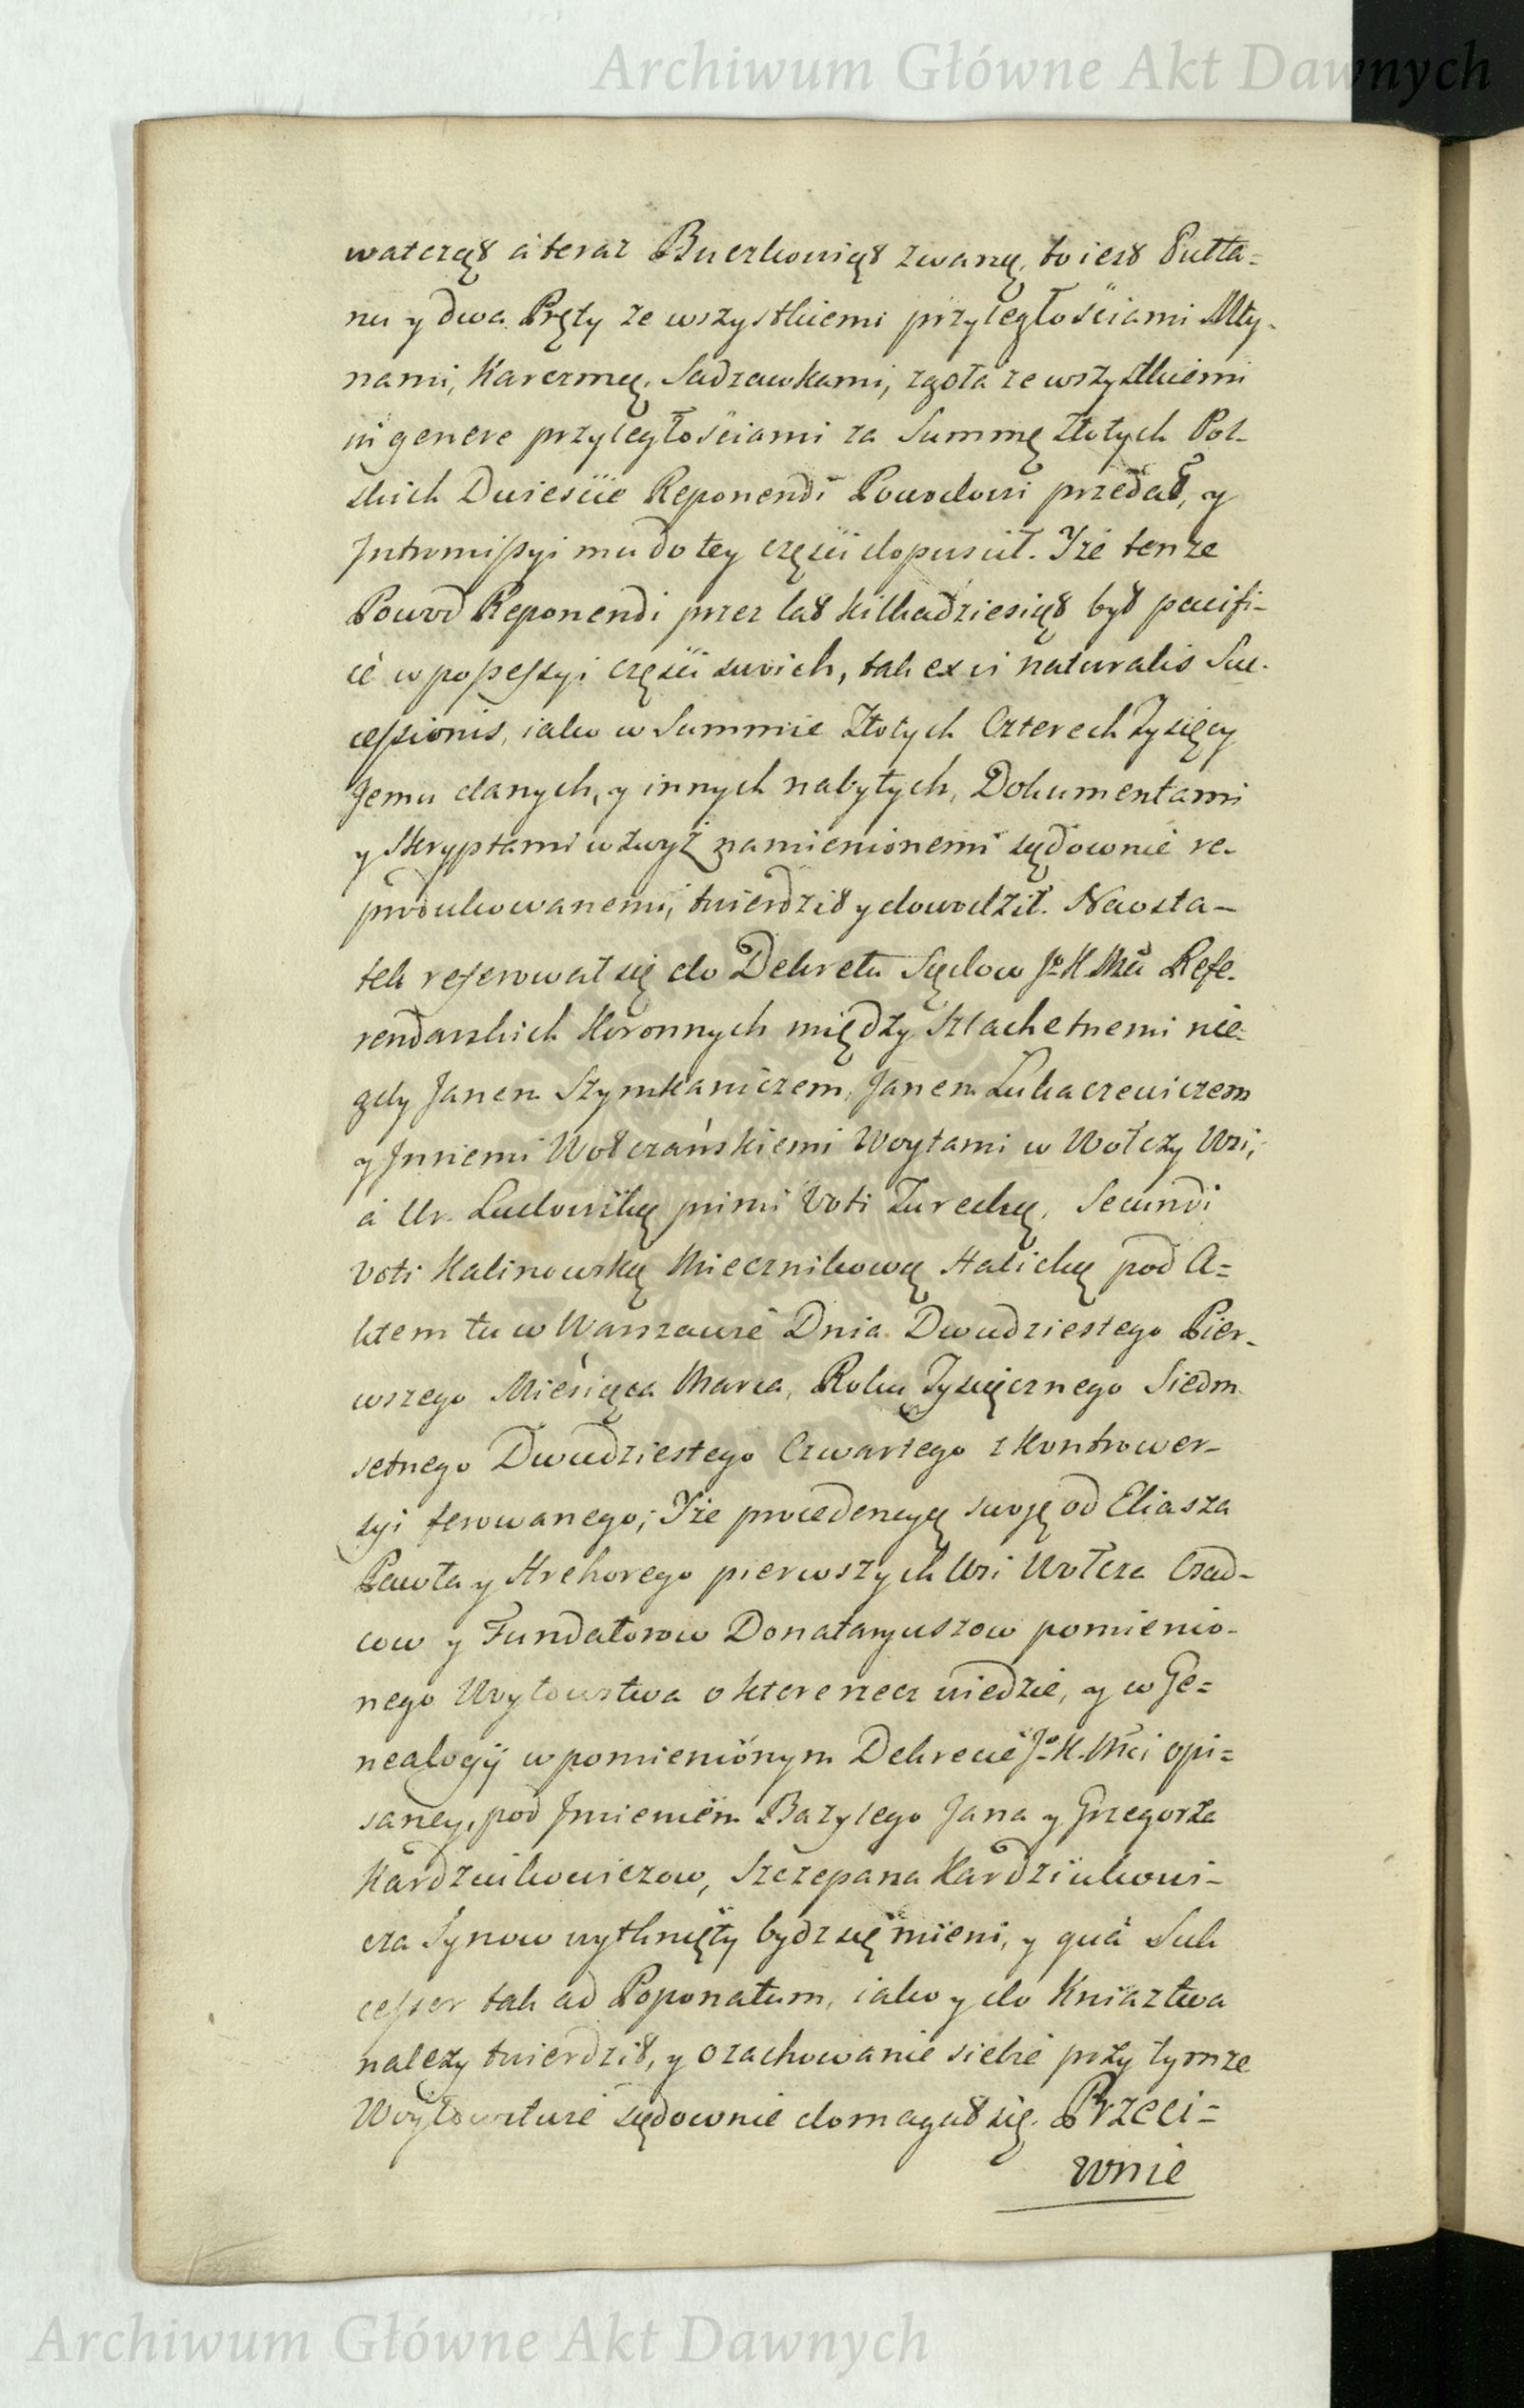 Archiwum Główne Akt Dawnych
watczął á teraz Buczkowiął zwaną, to iest Pułła=
nu y dwa Pręty ze wszystkiemi przyległościami Mły-
nami, Karczmą, Sadzawkami, zgoła ze wszystkiemi
in genere przyległościami za Summę Złotych Pol-
skich Dwiescie Reponendi Powodowi przedał, y
Intromissyi mu do tey części dopuscił. Iże tenze
Powod Reponendi przez lat kilkadziesiąt był pacifi-
cè w possessyi części swoich, tak ex vi naturalis Suc-
cessionis, iako w Summie Złotych Czterech Tysięcy
Jemu danych, y innych nabytych, Dokumentami
y Skryptami wzwyż namienionemi sądownie re-
produkowanemi, twierdził y dowodził. Naosta-
tek referował się do Dekretu Sądow Jo K Mci Refe-
rendarskich Koronnych między Szlachetnemi nie-
gdy Janem Szymkaniczem, Janem Lukaczewiczem
y Innemi Wołczańskiemi Woytami w Wołczy Wsi,
á Ur. Ludowiką primi Voti Turecką, Secundi
Voti Kalinowską Miecznikową Halicką pod A=
ktem tu w Warszawie Dnia Dwudziestego Pier-
wszego Miesiąca Marca, Roku Tysiącznego Siedm
setnego Dwudziestego Czwartego z Kontrower-
syi ferowanego; Iże procedencyą swoję od Eliasza
Pawła y Hrehorego pierwszych Wsi Wołcza Osad-
cow y Fundatorow Donataryuszow pomienio-
nego Woytowstwa o ktore rzecz wiedzie, y w Ge=
nealogij w pomienionym Dekrecie Jo K. Mci opi=
saney, pod Imieniem Bazylego Jana y Grzegorza
Kardziukowiczow, Szczepana Kardziukowi-
cza Synow wytknięty bydz się mieni, y quà Suk
cessor tak ad Poponatum, iako y do Kniaztwa
należy twierdził, y o zachowanie siebie przy tymze
Woytowstwie sądownie domagał się. Przeci=
wnie
Archiwum Główne Akt Dawnych